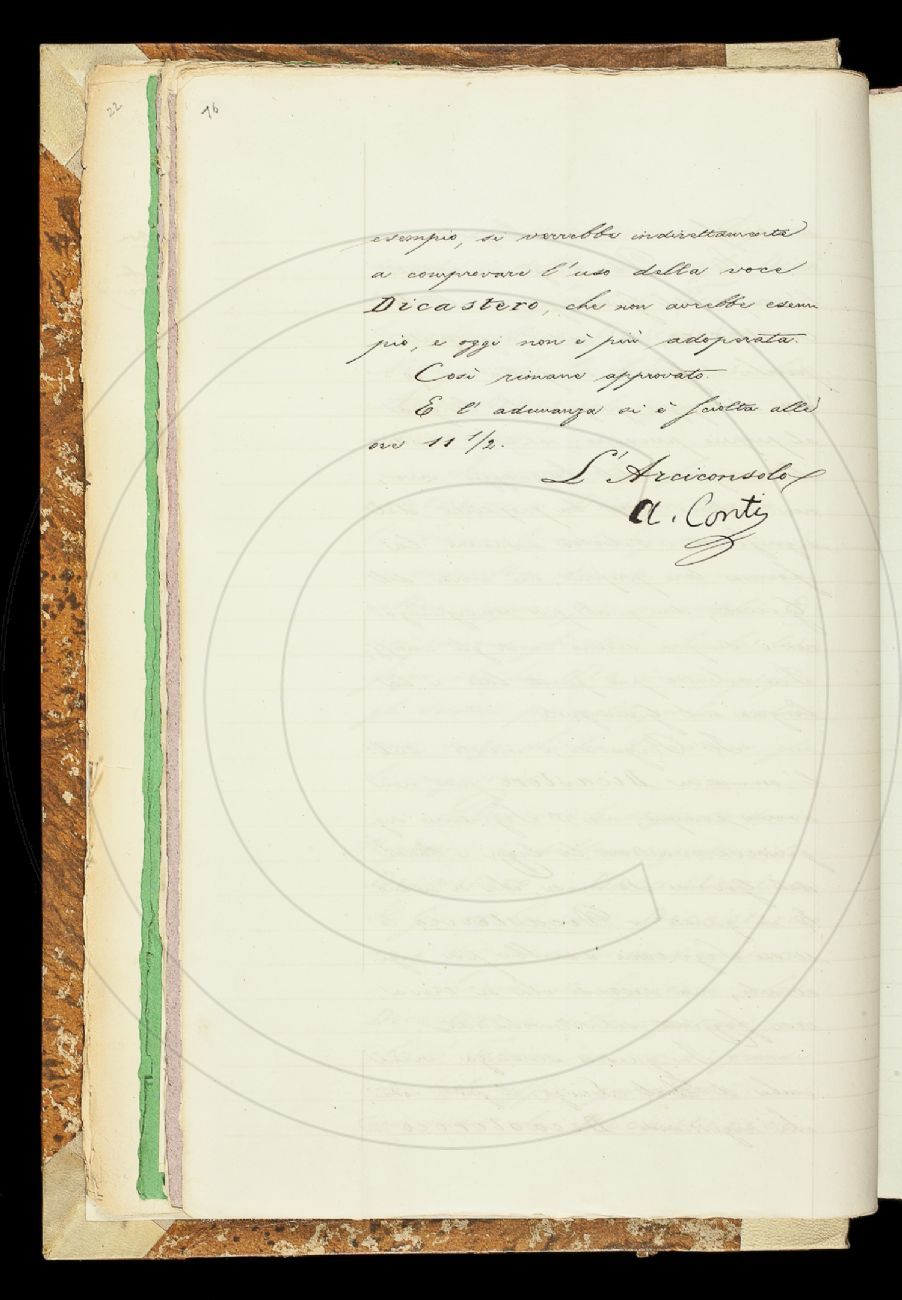 22
76
esempio, si verrebbe indirettamente
a comprovare l'uso della voce
Dicastero, che non avrebbe esem-
pio, e oggi non è più adoperata.
Così rimane approvato.
E l'adunanza si è sciolta alle
ore 11 1/2.
L'Arciconsolo
A. Conti